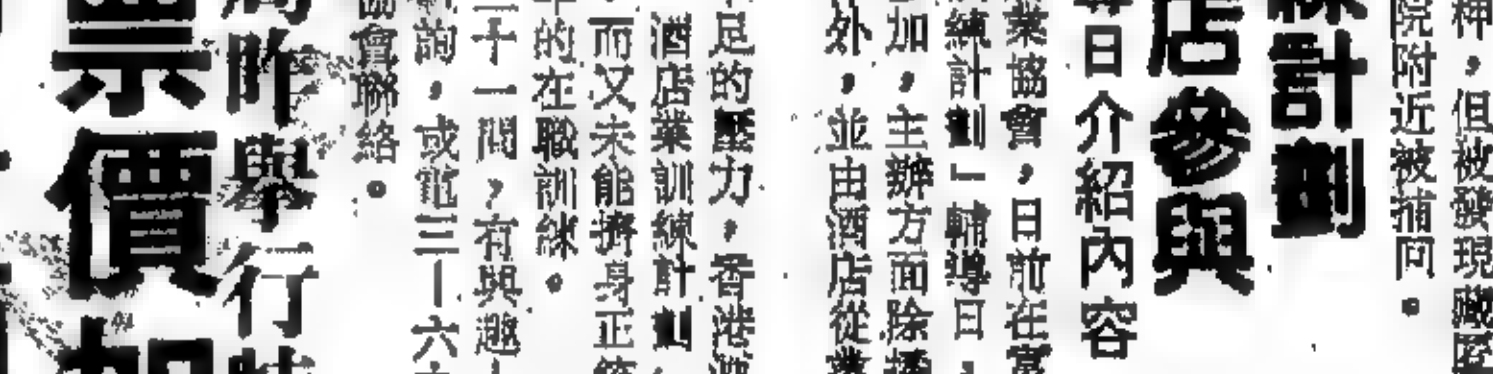 但被發現
院附近被捕回。
計劃
店參與
日介紹內容
業協會,日前在
練計劃」輔導日,
加,主辦方面除
外,並由酒店從業
足的壓力,香港
酒店業訓練計劃
而又未能擠身正
的在職訓練。
十一間,有興趣
詢,或電三—六
協會聯絡。
昨舉行
票價